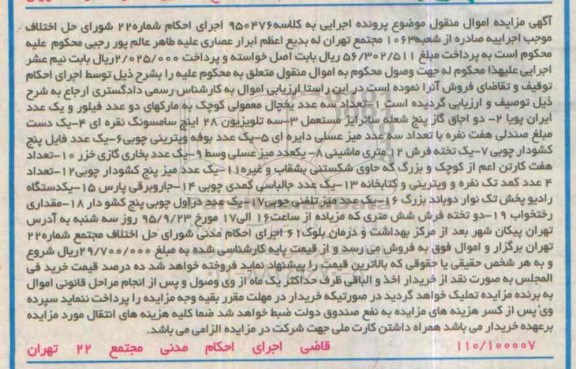 آگهی مزایده اموال منقول موضوع پرونده اجرایی به کلاسه ۹۵۰۴۷۶ اجرای احکام شماره ۲۲ شورای حل اختلاف
موجب اجراییه صادره از شعبه ۱۰۶۳ مجتمع تهران له بدیع اعظم ابرار عصاری علیه طاهر عالم پور رجبی محکوم علیه
محکوم است به پرداخت مبلغ ۵۶/۳۰۲/۵۱۱ ریال بابت اصل خواسته و پرداخت ۲/۰۲۵/۰۰۰ ریال بابت نیم عشر
اجرایی علیهذا محکوم له جهت وصول محکوم به اموال منقول متعلق به محکوم علیه را بشرح ذیل توسط اجرای احکام
توقیف و تقاضای فروش آنرا نموده است در این راستا ارزیابی اموال به کارشناس رسمی دادگستری ارجاع به شرح
ذیل توصیف و ارزیابی گردیده است ۱- تعداد سه عدد یخچال معمولی کوچک به مارکهای دو عدد فیلور و یک عدد
ایران پویا ۲- دو اجاق گاز پنج شعله سانرایز مستعمل ۳-سه تلویزیون ۲۸ اینچ سامسونگ نقره ای ۴-یک دست
مبلغ صندلی هفت نفره با تعداد سه عدد میز عسلی دایره ای ۵-یک عدد بوفه ویترینی چوبی ۶-یک عدد فایل پنج
کشودار چوبی ۷-یک تخته فرش ۱۲ متری ماشینی ۸-یکعدد میز عسلی وسط ۹-یک عدد بخاری گازی خزر ۱۰-تعداد
هفت کارتن اعم از کوچک و بزرگ که حاوی شکستنی بشقاب و غیره ۱۱-یک عدد میز پنج کشودار چوبی ۱۲-تعداد
۴ عدد کمد تک نفره و ویترینی و کتابخانه ۱۳-یک عدد جالباسی کمدی چوبی ۱۴-جاروبرقی پارس ۱۵-یکدستگاه
رادیو پخش تک نوار دوباند بزرگ ۱۶-یک عدد میز تلفنی چوبی ۱۷-یک عدد دراول چوبی پنج کشو دار ۱۸-مقداری
رختخواب ۱۹-دو تخته فرش شش متری که مزیاده از ساعت ۱۶ الی ۱۷ مورخ ۹۵/۹/۲۳ روز سه شنبه به آدرس
تهران پیکان شهر بعد از مرکز بهداشت و درمان بلوک ۶۱ اجرای احکام مدنی شورای حل اختلاف مجتمع شماره ۲۲
تهران برگزار و اموال فوق به فروش می رسد و از قیمت پایه کارشناسی شده به مبلغ ۲۹/۷۰۰/۰۰۰ ریال شروع
و به هر شخص حقیقی یا حقوقی که بالاترین قیمت را پیشنهاد نماید فروخته خواهد شد ده درصد قیمت خرید فی
المجلس به صورت نقد از خریدار اخذ و الباقی ظرف حداکثر یک ماه از وی وصول و پس از انجام مراحل قانونی اموال
به برنده مزایده تملیک خواهد گردید در صورتیکه خریدار در مهلت مقرر بقیه وجه مزایده را پرداخت ننماید سپرده
وی پس از کسر هزینه های مزایده به نفع صندوق دولت ضبط خواهد شد ضما کلیه هزینه های انتقال مورد مزایده
برعهده خریدار می باشد همراه داشتن کارت ملی جهت شرکت در مزایده الزامی می باشد.
۱۱۰/۱۰۰۰۰۷ قاضی اجرای احکام مدنی مجتمع ۲۲ تهران